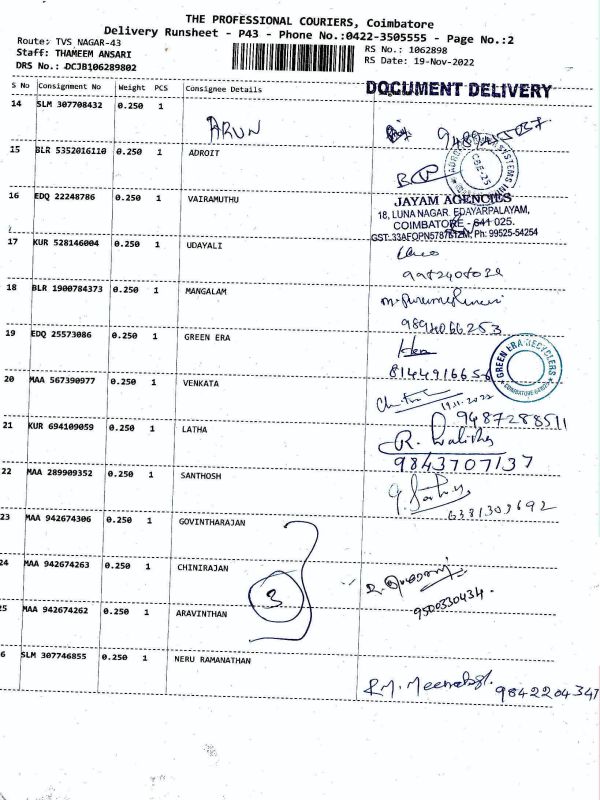 THE PROFESSIONAL COURIERS, Coimbatore
Delivery Runsheet - P43 - Phone No.:0422-3505555 - Page No.:2
Route: TVS NAGAR-43
RS No.: 1062898
Staff: THAMEEM ANSARI
RS Date: 19-Nov-2022
DRS No.: DCJB106289802
S No Consignment No Weight PCS Consignee Details
DOCUMENT DELIVERY
14 SLM 307708432 0.250 1
ARUN
15 BLR 5352016110 0.250 1 ADROIT
CBE-25
16 EDQ 22248786 0.250 1 VAIRAMUTHU
JAYAM AGENCIES
18, LUNA NAGAR, EDAYARPALAYAM,
COIMBATORE - 641 025.
Ph: 99525-54254
17 KUR 528146004 0.250 1 UDAYALI
18 BLR 1900784373 0.250 1 MANGALAM
9894066253
19 EDQ 25573086 0.250 1 GREEN ERA
8144916656
GREEN ERA RECYCLERS
20 MAA 567390977 0.250 1 VENKATA
19.11.2022
9487288511
21 KUR 694109059 0.250 1 LATHA
R. Lalitha
9843707137
22 MAA 289909352 0.250 1 SANTHOSH
6381309692
23 MAA 942674306 0.250 1 GOVINTHARAJAN
24 MAA 942674263 0.250 1 CHINIRAJAN
3
9500330434.
25 MAA 942674262 0.250 1 ARAVINTHAN
6 SLM 307746855 0.250 1 NERU RAMANATHAN
R.M. 9842204347